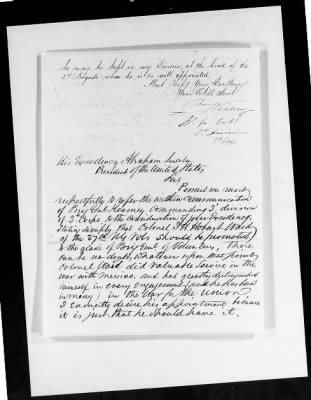 he may be kept in my Division, at the head of the
2nd Brigade where he is so well appreciated
Most Resp'y Your Excellency's
Your Obdt Servt
P. Kearny
3d Division
3d Corps
His Excellency Abraham Lincoln
President of the United States,
Sir,
Permit me most
respectfully to refer the within communication
of Brig Genl Kearney, Commanding 3d division
of 3d Corps, to the consideration of your Excellency,
stating simply that Colonel J. H. Hobart Ward
of the 38th NY Vols should be promoted
to the grade of Brig Genl of Volunteers, There
can be no doubt, whatever upon that point,
colonel Ward did valuable service in the
war with Mexico, and has greatly distinguished
himself in every engagement (and he has been
in many) in the War for the Union
I earnestly desire his appointment because
it is just that he should have it.